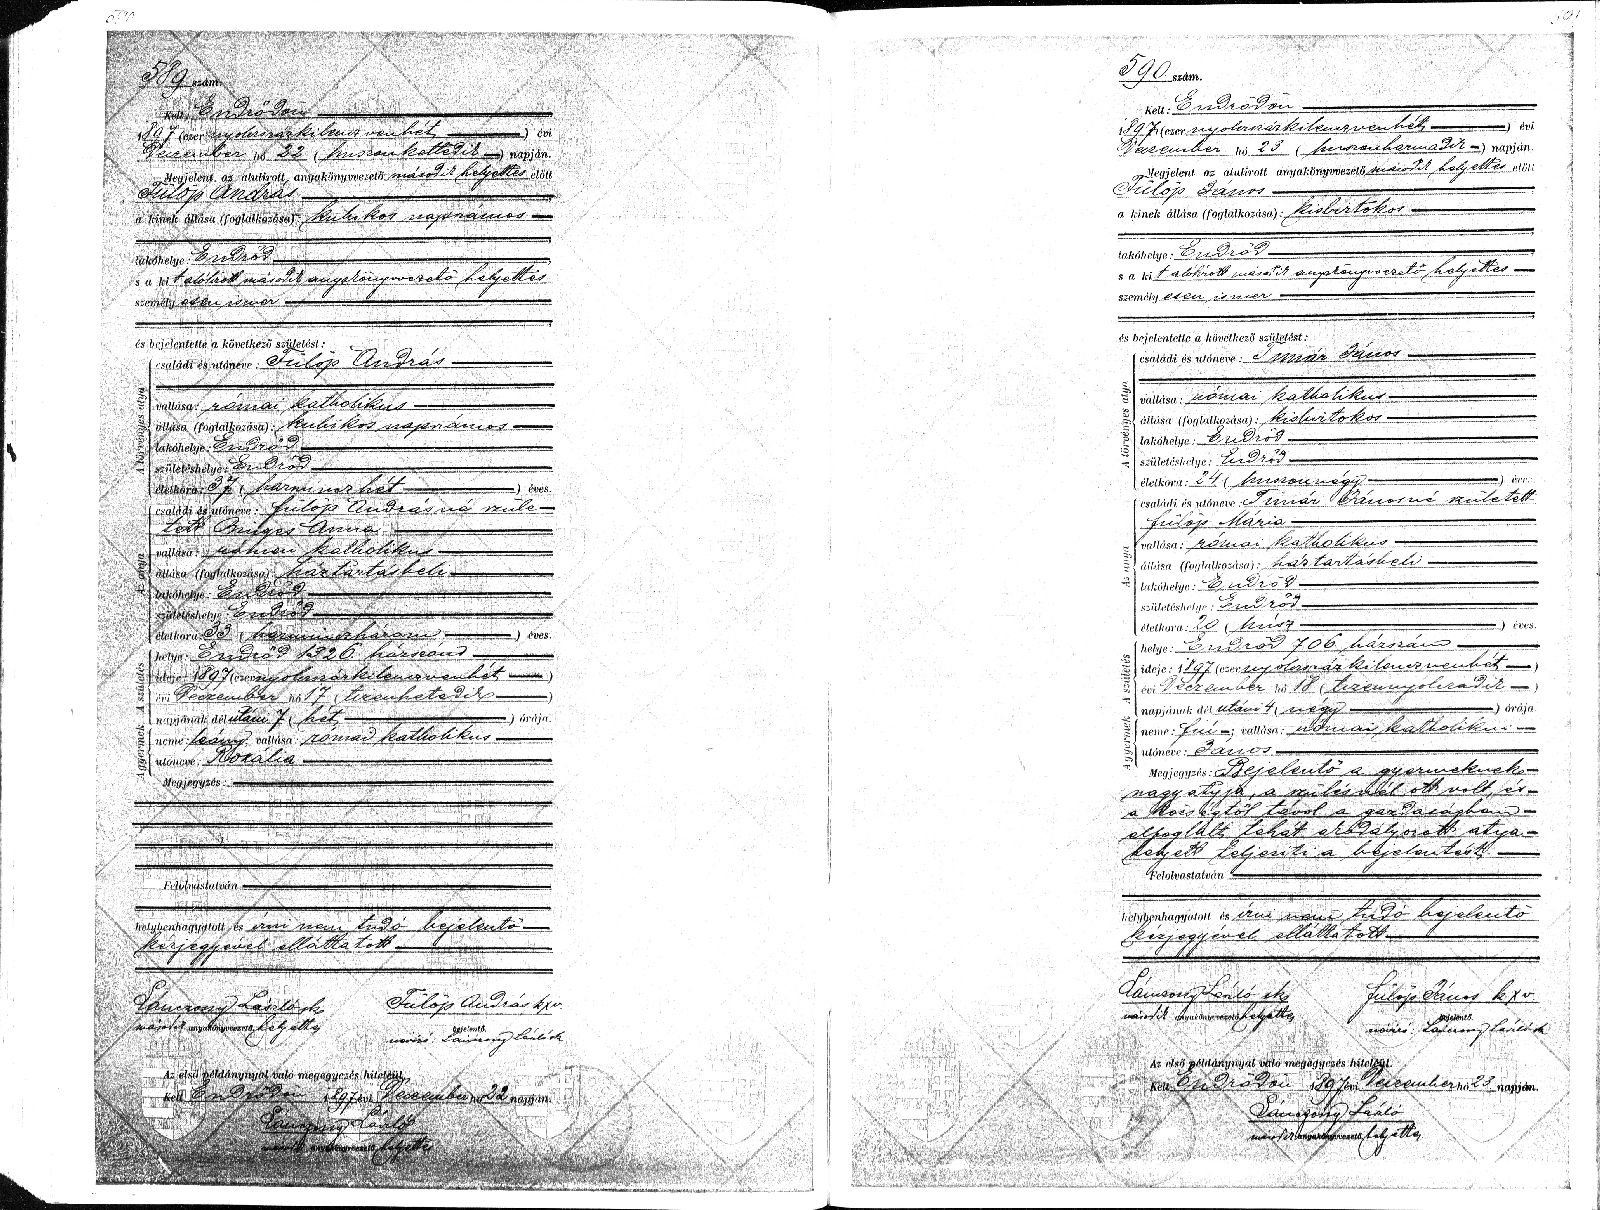 589 szám.
Kelt: Endrődön
1897 (ezer nyolczszázkilenczvenhét) évi
Deczember hó 22 (huszonkettedik) napján.
Megjelent az alulirott anyakönyvvezető második helyettes előtt
Fülöp András
a kinek állása (foglalkozása): kubikos napszámos
lakóhelye: Endrőd
s a kit alólirott második anyakönyvvezető helyettes
személyesen ismer
és bejelentette a következő születést:
A törvényes atya
családi és utóneve: Fülöp András
vallása: római katholikus
állása (foglalkozása): kubikos napszámos
lakóhelye: Endrőd
születéshelye: Endrőd
életkora: 37 (harminczhét) éves.
Az anya
családi és utóneve: Fülöp Andrásné szüle-
tett Anna
vallása: római katholikus
állása (foglalkozása): háztartásbeli
lakóhelye: Endrőd
születéshelye: Endrőd
életkora: 33 (harminczhárom) éves.
A születés
helye: Endrőd 1326 házszám
ideje: 1897 (ezer nyolczszázkilenczvenhét)
évi Deczember hó 17 (tizenhetedik)
napjának dél utáni 7 (hét) órája.
A gyermek
neme: leány; vallása: római katholikus
utóneve: Rozália
Megjegyzés:
Felolvastatván
helybenhagyatott és írni nem tudó bejelentő
kézjegyével elláttatott
Lánczony László sk
második anyakönyvvezető helyettes
Fülöp András k x v.
bejelentő.
névíró: Lánczony László sk
Az első példánynyal való megegyezés hiteléül.
Kelt Endrődön 1897 évi Deczember hó 22 napján.
Lánczony László
második anyakönyvvezető helyettes
590 szám.
Kelt: Endrődön
1897 (ezer nyolczszázkilenczvenhét) évi
Deczember hó 23 (huszonharmadik) napján.
Megjelent az alulirott anyakönyvvezető második helyettes előtt
Fülöp János
a kinek állása (foglalkozása): kisbirtokos
lakóhelye: Endrőd
s a kit alólirott második anyakönyvvezető helyettes
személyesen ismer
és bejelentette a következő születést:
A törvényes atya
családi és utóneve: Timár János
vallása: római katholikus
állása (foglalkozása): kisbirtokos
lakóhelye: Endrőd
születéshelye: Endrőd
életkora: 24 (huszonnégy) éves.
Az anya
családi és utóneve: Timár Jánosné született
Fülöp Mária
vallása: római katholikus
állása (foglalkozása): háztartásbeli
lakóhelye: Endrőd
születéshelye: Endrőd
életkora: 20 (húsz) éves.
A születés
helye: Endrőd 706 házszám
ideje: 1897 (ezer nyolczszázkilenczvenhét)
évi Deczember hó 18 (tizennyolczadik)
napjának dél utáni 4 (négy) órája
A gyermek
neme: fiú; vallása: római katholikus
utóneve: János
Megjegyzés: Bejelentő a gyermeknek
nagyatyja, a szülésnél ott volt, és
a községtől távol a gazdaságban
elfoglalt, tehát akadályozott atya
helyett teljesíti a bejelentést.
Felolvastatván
helybenhagyatott és írni nem tudó bejelentő
kézjegyével elláttatott
Lánczony László sk
második anyakönyvvezető helyettes
Fülöp János k x v
bejelentő.
névíró: Lánczony László sk
Az első példánynyal való megegyezés hiteléül.
Kelt Endrődön 1897 évi Deczember hó 23 napján.
Lánczony László
második anyakönyvvezető helyettes